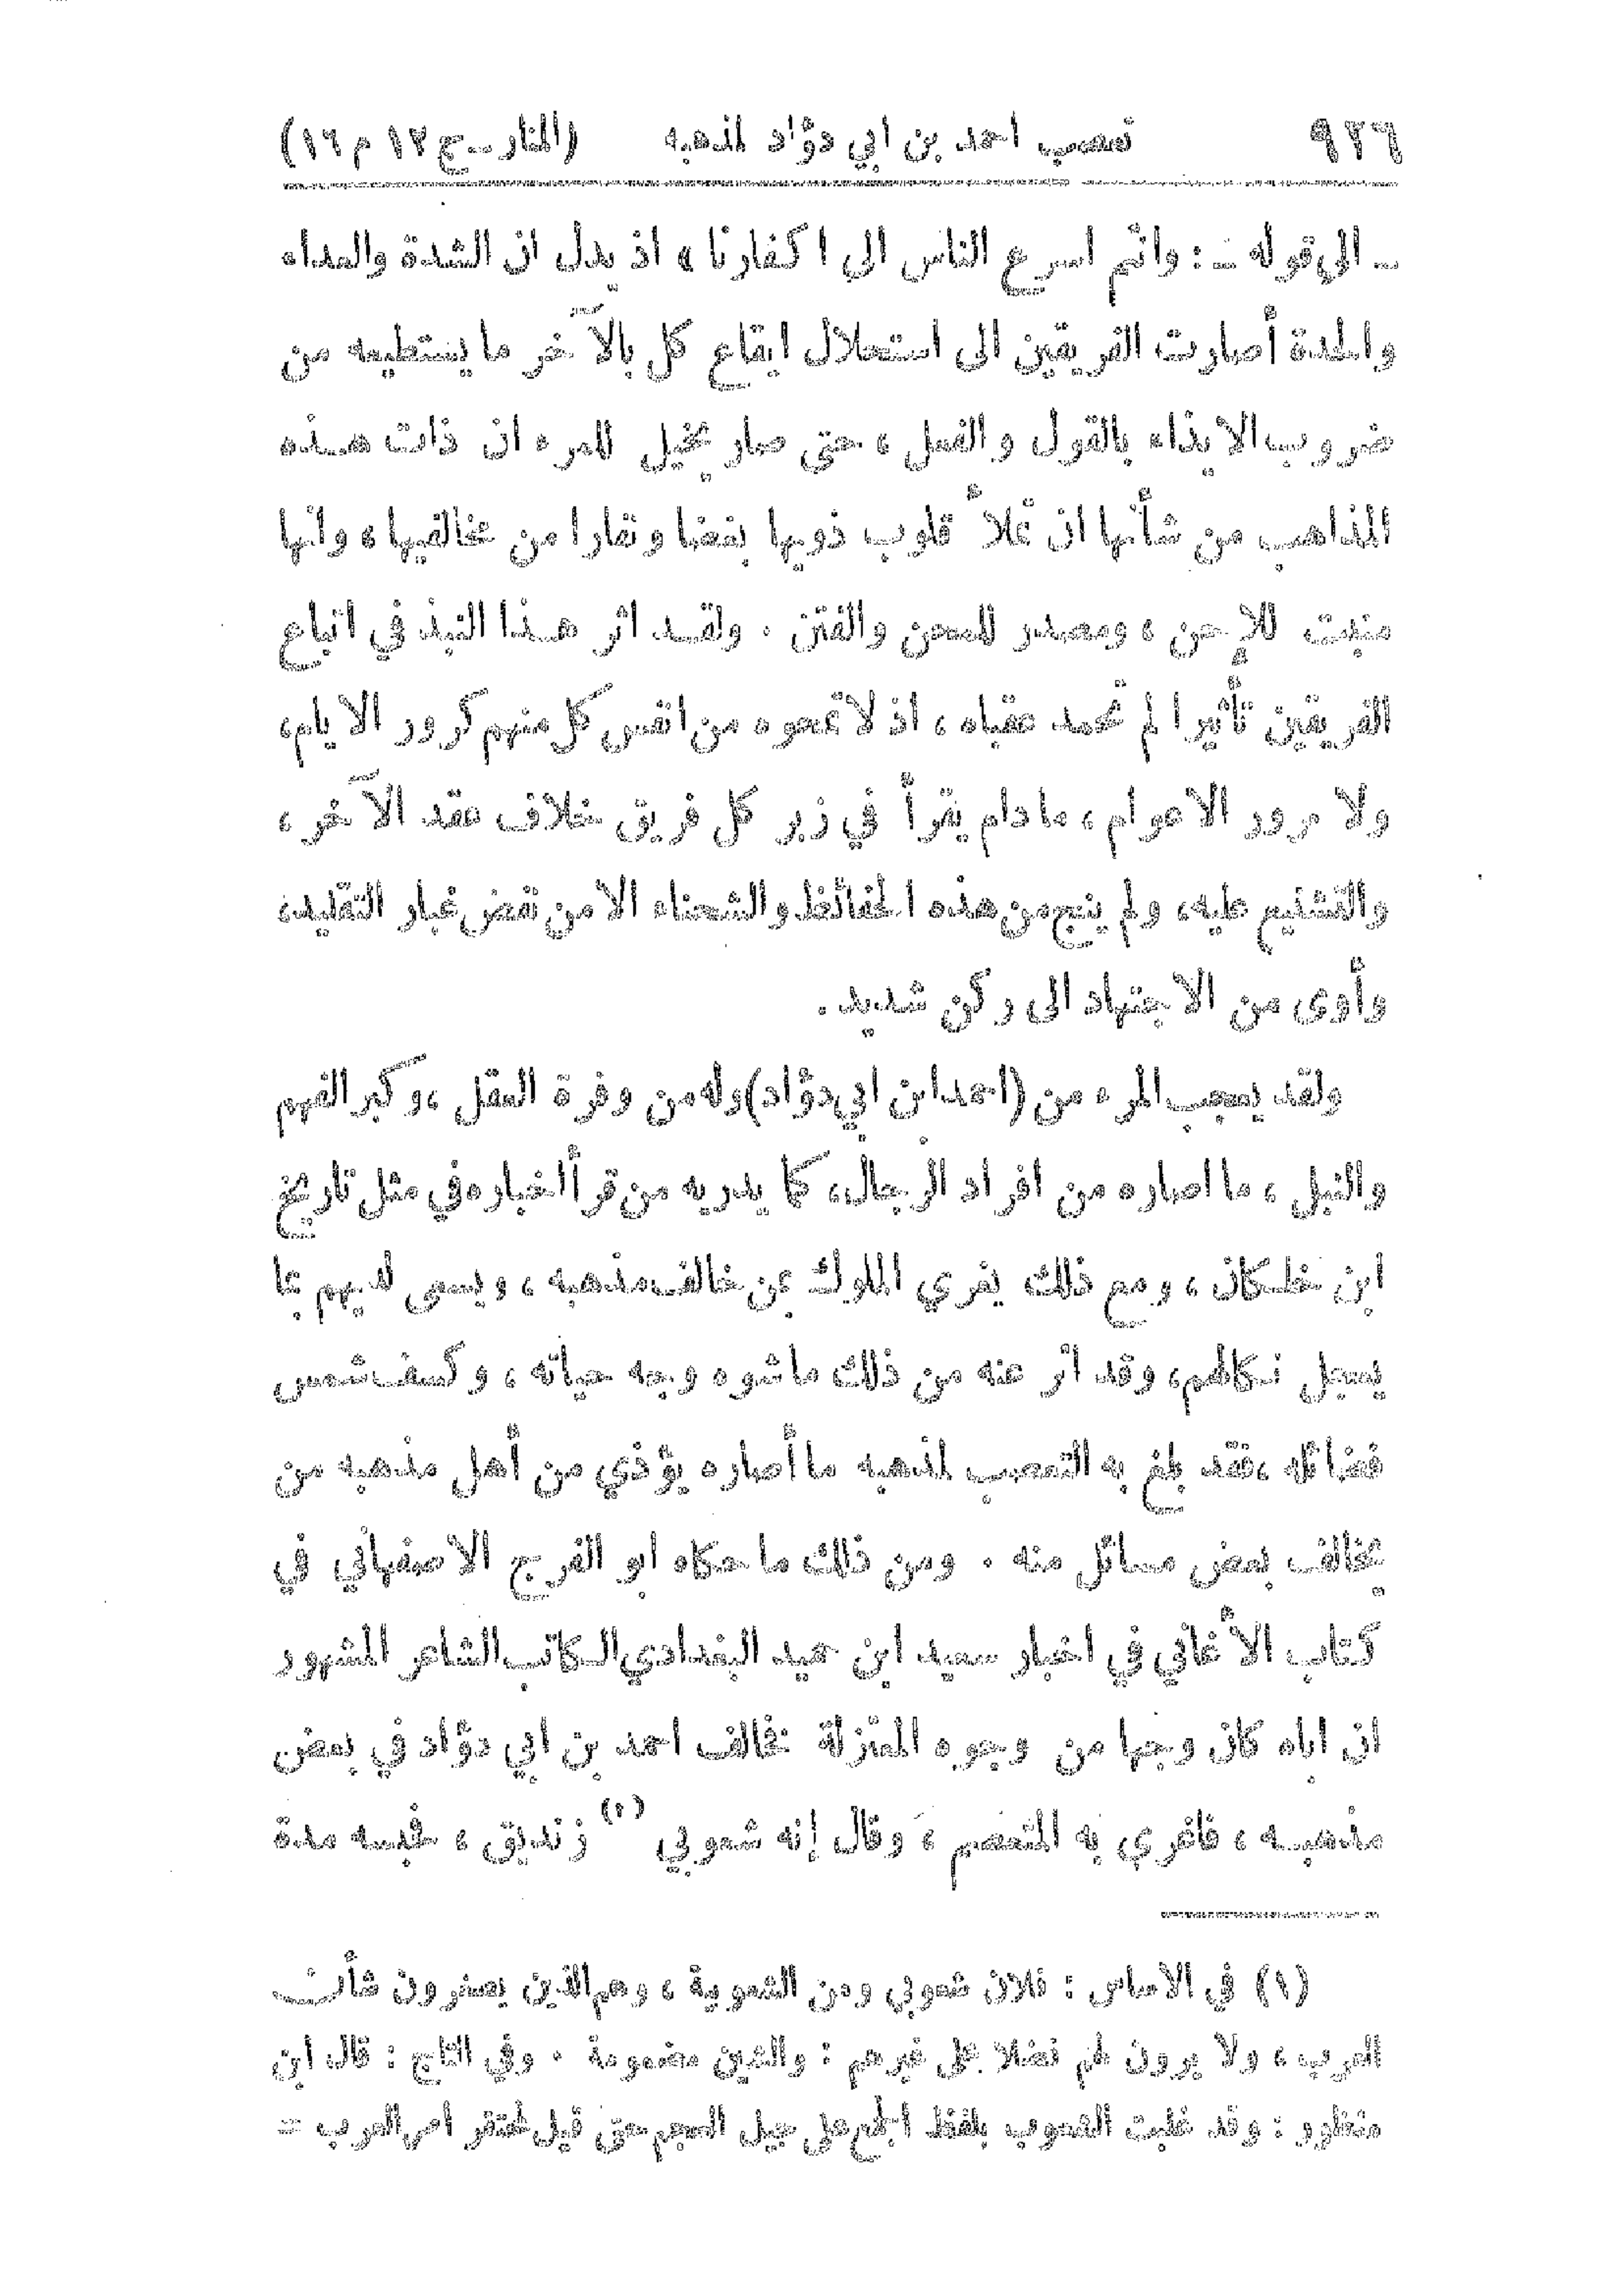 ٩٢٦ تعصب احمد بن ابي دؤاد لمذهبه (المنار ــ ج ١٢ م ١٦)
ــ الى قوله ــ : وانتم اسرع الناس الى اكفارنا » اذ يدل ان الشدة والعداء
والحدة أصارت الفريقين الى استحلال ايقاع كل بالآخر ما يستطيعه من
ضروب الايذاء بالقول والفعل ، حتى صار يخيل للمرء ان ذات هذه
المذاهب من شأنها ان تملأ قلوب ذويها بغضا ونفارا من مخالفيها ، وانها
منبت للإحن ، ومصدر للمحن والفتن . ولقد اثر هذا النبذ في اتباع
الفريقين تأثيرا لم تحمد عقباه ، اذ لا تمحوه من انفس كل منهم كرور الايام،
ولا مرور الاعوام ، ما دام يقرأ في زبر كل فريق خلاف عقد الآخر ،
والتشنيع عليه، ولم ينج من هذه الحفائظ والشحناء الا من نفض غبار التقليد،
وأوى من الاجتهاد الى ركن شديد .
ولقد يعجب المرء من (احمد ابن ابي دؤاد) وله من وفرة العقل ، وكبر الفهم
والنبل ، ما اصاره من افراد الرجال، كما يدريه من قرأ اخباره في مثل تاريخ
ابن خلكان ، ومع ذلك يغري الملوك بمن خالف مذهبه ، ويسعى لديهم بما
يعجل نكالهم، وقد اثر عنه من ذلك ما شوه وجه حياته ، وكسف شمس
فضائله ، فقد بلغ به التعصب لمذهبه ما أصاره يؤذي من أهل مذهبه من
يخالف بعض مسائل منه . ومن ذلك ما حكاه ابو الفرج الاصفهاني في
كتاب الأغاني في اخبار سعيد ابن حميد البغدادي الكاتب الشاعر المشهور
ان اباه كان وجها من وجوه المعتزلة فخالف احمد بن ابي دؤاد في بعض
مذهبه ، فاغرى به المعتصم ، وقال إنه شعوبي (١) زنديق ، فحبسه مدة
(١) في الاساس : فلان شعوبي ومن الشعوبية ، وهم الذين يصغرون شأن
العرب ، ولا يرون لهم فضلا على غيرهم : والشين مضمومة . وفي التاج : قال ابن
منظور : وقد غلبت الشعوب بلفظ الجمع على جيل العجم حتى قيل لمحتقر امر العرب =